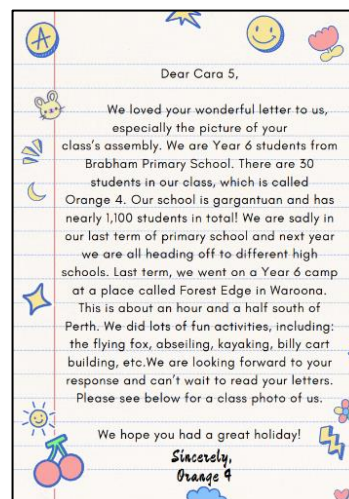 A
Dear Cara 5,
We loved your wonderful letter to us,
especially the picture of your
class's assembly. We are Year 6 students from
Brabham Primary School. There are 30
students in our class, which is called
Orange 4. Our school is gargantuan and has
nearly 1,100 students in total! We are sadly in
our last term of primary school and next year
we are all heading off to different high
schools. Last term, we went on a Year 6 camp
at a place called Forest Edge in Waroona.
This is about an hour and a half south of
Perth. We did lots of fun activities, including:
the flying fox, abseiling, kayaking, billy cart
building, etc.We are looking forward to your
response and can't wait to read your letters.
Please see below for a class photo of us.
We hope you had a great holiday!
Sincerely,
Orange 4